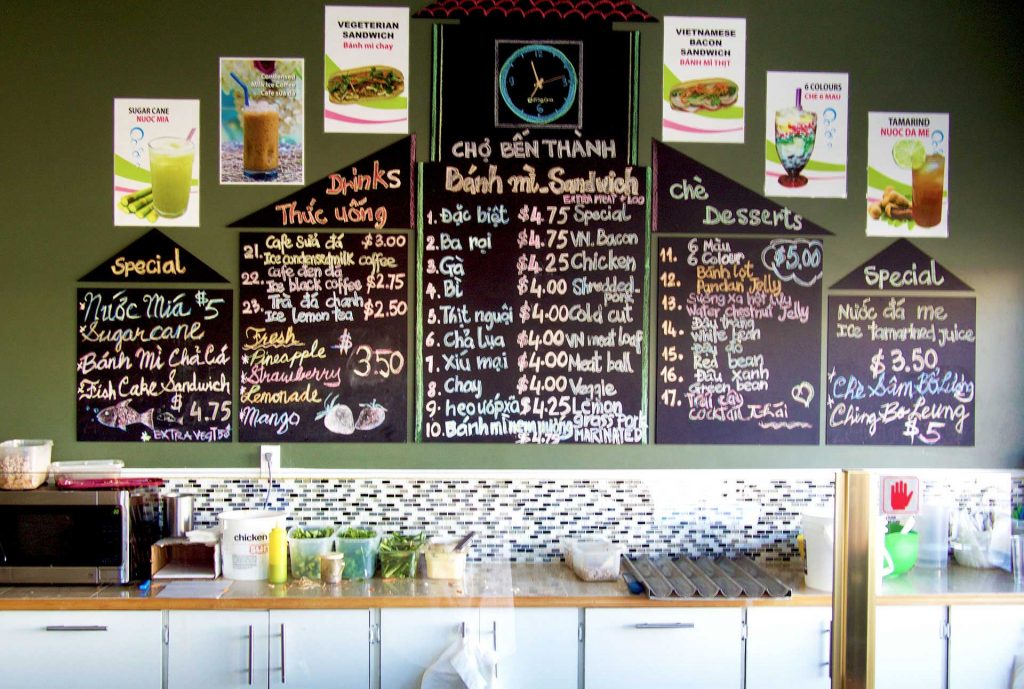 VEGETERIAN
SANDWICH
Bánh mì chay
VIETNAMESE
BACON
SANDWICH
BÁNH MÌ THỊT
Condensed
Milk Ice Coffee
Cafe sữa đá
SUGAR CANE
NUOC MIA
6 COLOURS
CHÈ 6 MAU
TAMARIND
NUOC DA ME
12
3
6
9
CHỢ BẾN THÀNH
Bánh mì - Sandwich
EXTRA MEAT $1.00
1. Đặc biệt $4.75 Special
2. Ba rọi $4.75 VN. Bacon
3. Gà $4.25 Chicken
4. Bì $4.00 Shredded
pork
5. Thịt nguội $4.00 Cold cut
6. Chả lụa $4.00 VN meat loaf
7. Xíu mại $4.00 Meat ball
8. Chay $4.00 Veggie
9. heo ướp xả $4.25 Lemon
grass Pork
10. Bánh mì nem nướng $4.75 MARINATED
Drinks
Thức uống
21. Cafe sữa đá $3.00
Ice condensed milk coffee
22. Cafe đen đá
Ice black coffee $2.75
23. Trà đá chanh
Ice lemon tea $2.50
Fresh
Pineapple $3.50
Strawberry
Lemonade
Mango
Special
Nước Mía $5
Sugar cane
Bánh Mì Chả Cá
Fish Cake Sandwich
$4.75
EXTRA VEGI 50¢
chè
Desserts
11. 6 Màu $5.00
6 Colour
12. Bánh lọt
Pandan Jelly
13. Sương xa hột lựu
Water chestnut Jelly
14. Đậu trắng
white bean
15. Đậu đỏ
Red bean
16. Đậu xanh
Green bean
17. Trái cây
cocktail thái
Special
Nước đá me
Ice tamarined juice
$3.50
Chè Sâm Bổ Lượng
Ching Bo Leung
$5
chicken